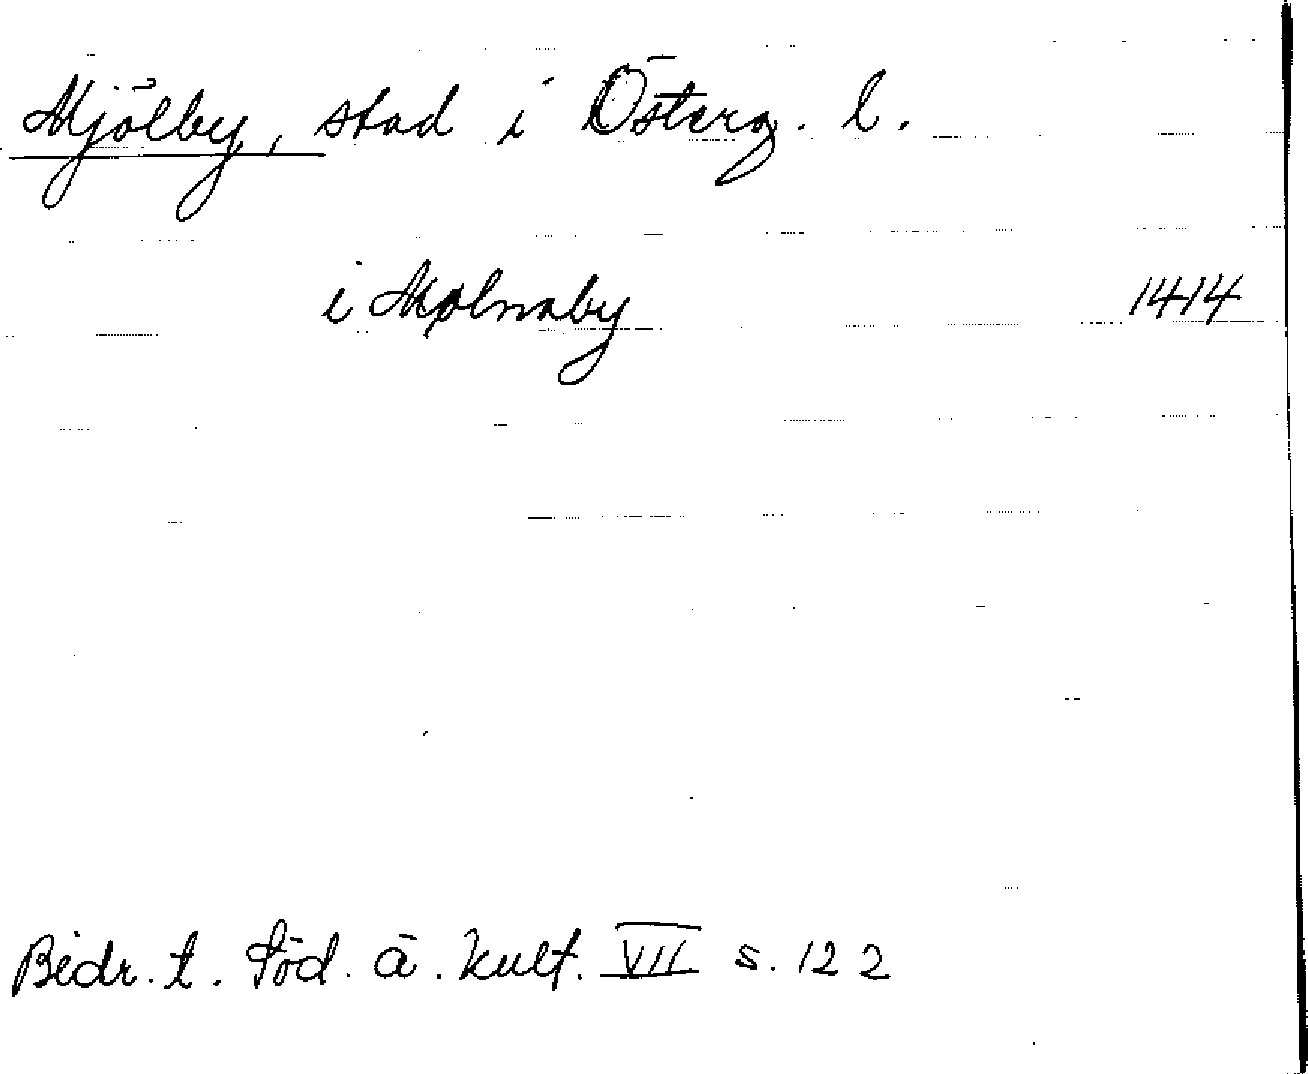 Mjölby, stad i Österg. l.
i Mølnaby 1414
Bidr. t. Söd. ä. kult. VII s. 122